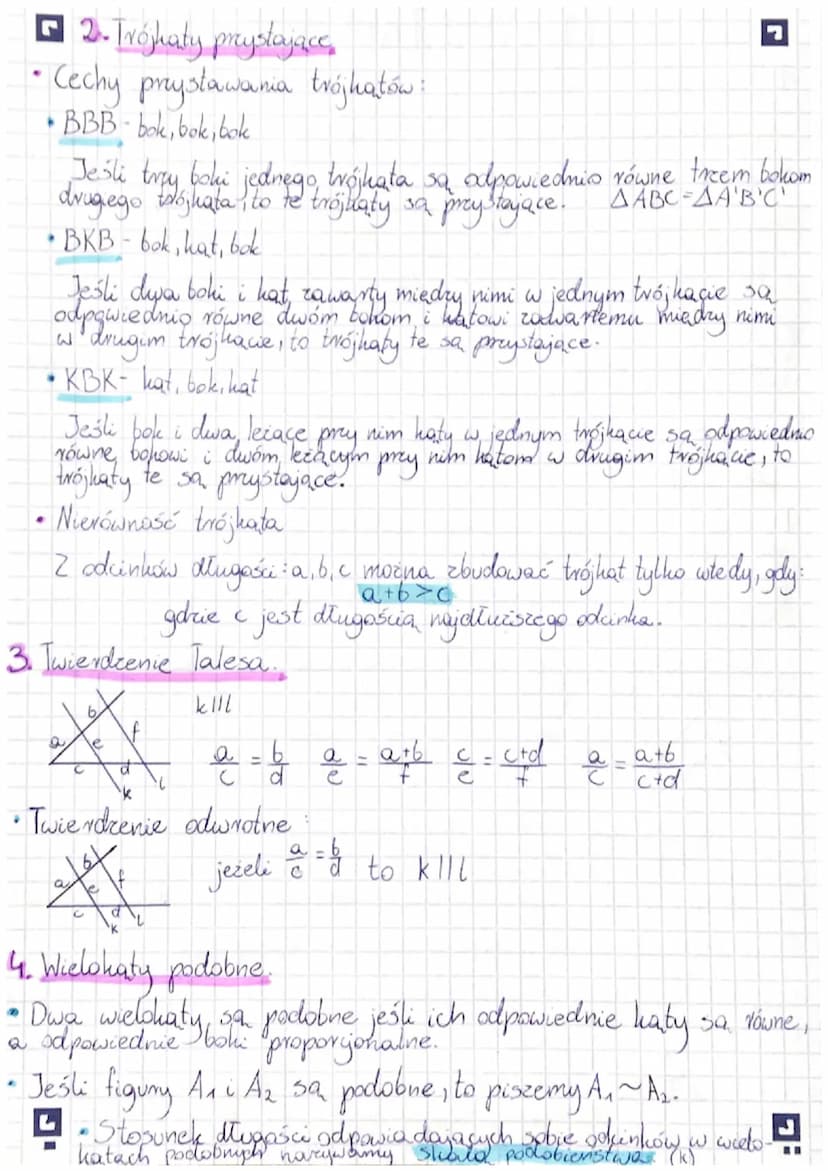 2. Trójkąty przystające
• Cechy przystawania trójkątów:
• BBB - bok, bok, bok
Jeśli trzy boki jednego trójkąta są odpowiednio równe trzem bokom
drugiego trójkąta, to te trójkąty są przystające. ΔABC=ΔA'B'C'
• BKB - bok, kąt, bok
Jeśli dwa boki i kąt zawarty między nimi w jednym trójkącie są
odpowiednio równe dwóm bokom i kątowi zadwartemu między nimi
w drugim trójkącie, to trójkąty te są przystające.
• KBK - kąt, bok, kąt
Jeśli bok i dwa leżące przy nim kąty w jednym trójkącie są odpowiednio
równe bokowi i dwóm leżącym przy nim kątom w drugim trójkącie, to
trójkąty te są przystające.
• Nierówność trójkąta
Z odcinków długości: a, b, c można zbudować trójkąt tylko wtedy, gdy:
a+b>c
gdzie c jest długością najdłuższego odcinka.
3. Twierdzenie Talesa.
k||l
a b c d e f k l
a/c = b/d a/e = a+b/f c/e = c+d/f a/c = a+b/c+d
• Twierdzenie odwrotne:
a b c d e f k l
jeżeli a/c = b/d to k||l
4. Wielokąty podobne.
• Dwa wielokąty są podobne jeśli ich odpowiednie kąty są równe,
a odpowiednie boki proporcjonalne.
• Jeśli figury A₁ i A₂ są podobne, to piszemy A₁~A₂.
• Stosunek długości odpowiadających sobie odcinków w wielo-
kątach podobnych nazywamy skalą podobieństwa. (k)